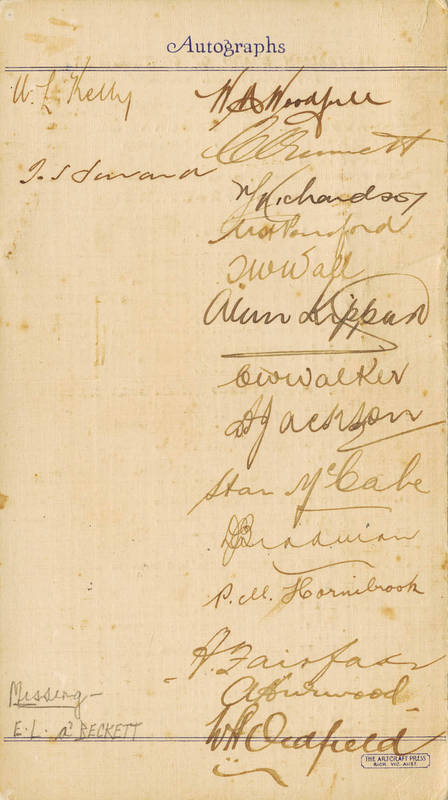 Autographs
W. L. Kelly
T. J. Howard
W M Woodfull
V Richardson
W H Ponsford
T W Wall
Alan Kippax
C W Walker
A Jackson
Stan McCabe
D G Bradman
P. M. Hornibrook
A. Fairfax
A Hurwood
W A Oldfield
Missing –
E. L. a' BECKETT
THE ARTCRAFT PRESS
RICH. VIC. AUST.